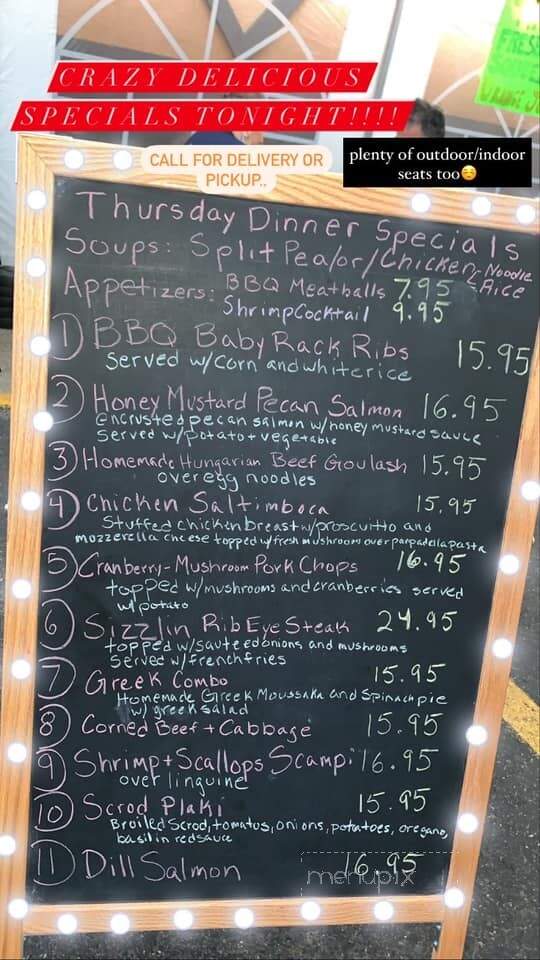 CRAZY DELICIOUS
SPECIALS TONIGHT!!!!
FRES
CALL FOR DELIVERY OR
PICKUP..
plenty of outdoor/indoor
seats too☺️
Thursday Dinner Specials
Soups: Split Pea/or/Chicken-Noodle
Rice
Appetizers: BBQ Meatballs 7.95
Shrimp Cocktail 9.95
1 BBQ Baby Rack Ribs 15.95
Served w/corn and white rice
2 Honey Mustard Pecan Salmon 16.95
encrusted pecan salmon w/honey mustard sauce
Served w/potato + vegetable
3 Homemade Hungarian Beef Goulash 15.95
over egg noodles
4 Chicken Saltimboca 15.95
Stuffed chicken breast w/proscuitto and
mozzerella cheese topped w/fresh mushrooms over parpadala pasta
5 Cranberry-Mushroom Pork Chops 16.95
topped w/mushrooms and cranberries served
w/potato
6 Sizzlin Rib Eye Steak 24.95
topped w/sauteed onions and mushrooms
Served w/french fries
7 Greek Combo 15.95
Homemade Greek Moussaka and Spinach pie
w/greek salad
8 Corned Beef + Cabbage 15.95
9 Shrimp + Scallops Scampi 16.95
over linguine
10 Scrod Plaki 15.95
Broiled Scrod, tomatus, onions, potatoes, oregano,
basil in red sauce
11 Dill Salmon 16.95
menupix